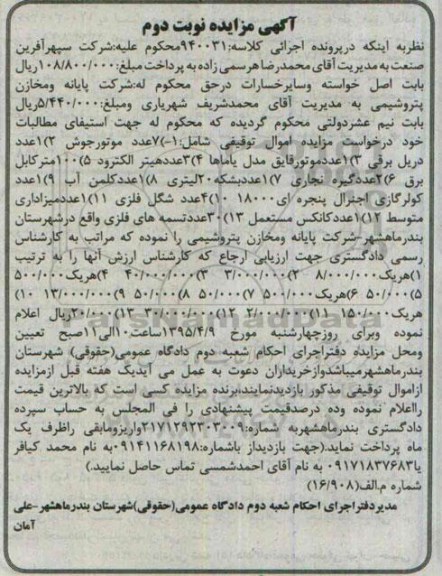 آگهی مزایده نوبت دوم
نظربه اینکه درپرونده اجرائی کلاسه:۹۴۰۰۳۱محکوم علیه:شرکت سپهرآفرین
صنعت به مدیریت آقای محمدرضا هرسمی زاده به پرداخت مبلغ:۱۰۸/۸۰۰/۰۰۰ریال
بابت اصل خواسته وسایرخسارات درحق محکوم له:شرکت پایانه ومخازن
پتروشیمی به مدیریت آقای محمدشریف شهریاری ومبلغ:۵/۴۴۰/۰۰۰ریال
بابت نیم عشردولتی محکوم گردیده که محکوم له جهت استیفای مطالبات
خود درخواست مزایده اموال توقیفی شامل:۱-)۷عدد موتورجوش ۲)۱عدد
دریل برقی ۳)۱عددموتورقایق مدل یاماها ۴)۳عددهیتر الکترود ۵)۱۰۰مترکابل
برق ۶)۲عددگیره نجاری ۷)۱عددبشکه۲۰لیتری ۸)۱عددکلمن آب ۹)۱عدد
کولرگازی اجنرال پنجره ای۱۸۰۰۰ ۱۰)۴عدد شگل فلزی ۱۱)۱عددمیزاداری
متوسط ۱۲)۱عددکانکس مستعمل ۱۳)۳۰عددتسمه های فلزی واقع درشهرستان
بندرماهشهر-شرکت پایانه ومخازن پتروشیمی را نموده که مراتب به کارشناس
رسمی دادگستری جهت ارزیابی ارجاع که کارشناس ارزش آنها را به ترتیب
۱)هریک۸/۰۰۰/۰۰۰ ۲) ۳)۳/۰۰۰/۰۰۰ ۴)هریک۵۰۰/۰۰۰
۵)۵۰/۰۰۰ ۶)هریک۵۰۰/۰۰۰ ۷)۵۰/۰۰۰ ۸)۵۰/۰۰۰ ۹)۱۳/۰۰۰/۰۰۰ ۱۰)
هریک۱۵۰/۰۰۰ ۱۱)۲/۰۰۰/۰۰۰ ۱۲)۳۰/۰۰۰/۰۰۰ ۱۳)۲۰/۰۰۰ریال اعلام
نموده وبرای روزچهارشنبه مورخ ۱۳۹۵/۴/۹ساعت۱۰الی۱۱صبح تعیین
ومحل مزایده دفتراجرای احکام شعبه دوم دادگاه عمومی(حقوقی) شهرستان
بندرماهشهرمیباشدوازخریداران دعوت به عمل می آیدیک هفته قبل ازمزایده
ازاموال توقیفی مذکور بازدیدنمایند،برنده مزایده کسی است که بالاترین قیمت
رااعلام نموده وده درصدقیمت پیشنهادی را فی المجلس به حساب سپرده
دادگستری بندرماهشهربه شماره:۲۱۷۱۲۹۲۳۰۳۰۰۹واریزومابقی راظرف یک
ماه پرداخت نماید.(جهت بازدیداز باشماره:۰۹۱۴۱۱۶۸۱۹۸به نام محمد کیافر
یا۰۹۱۷۱۸۳۷۶۸۳ به نام آقای احمدشمسی تماس حاصل نمایید.)
شماره م.الف(۱۶/۹۰۸)
مدیردفتراجرای احکام شعبه دوم دادگاه عمومی(حقوقی)شهرستان بندرماهشهر-علی
آمان